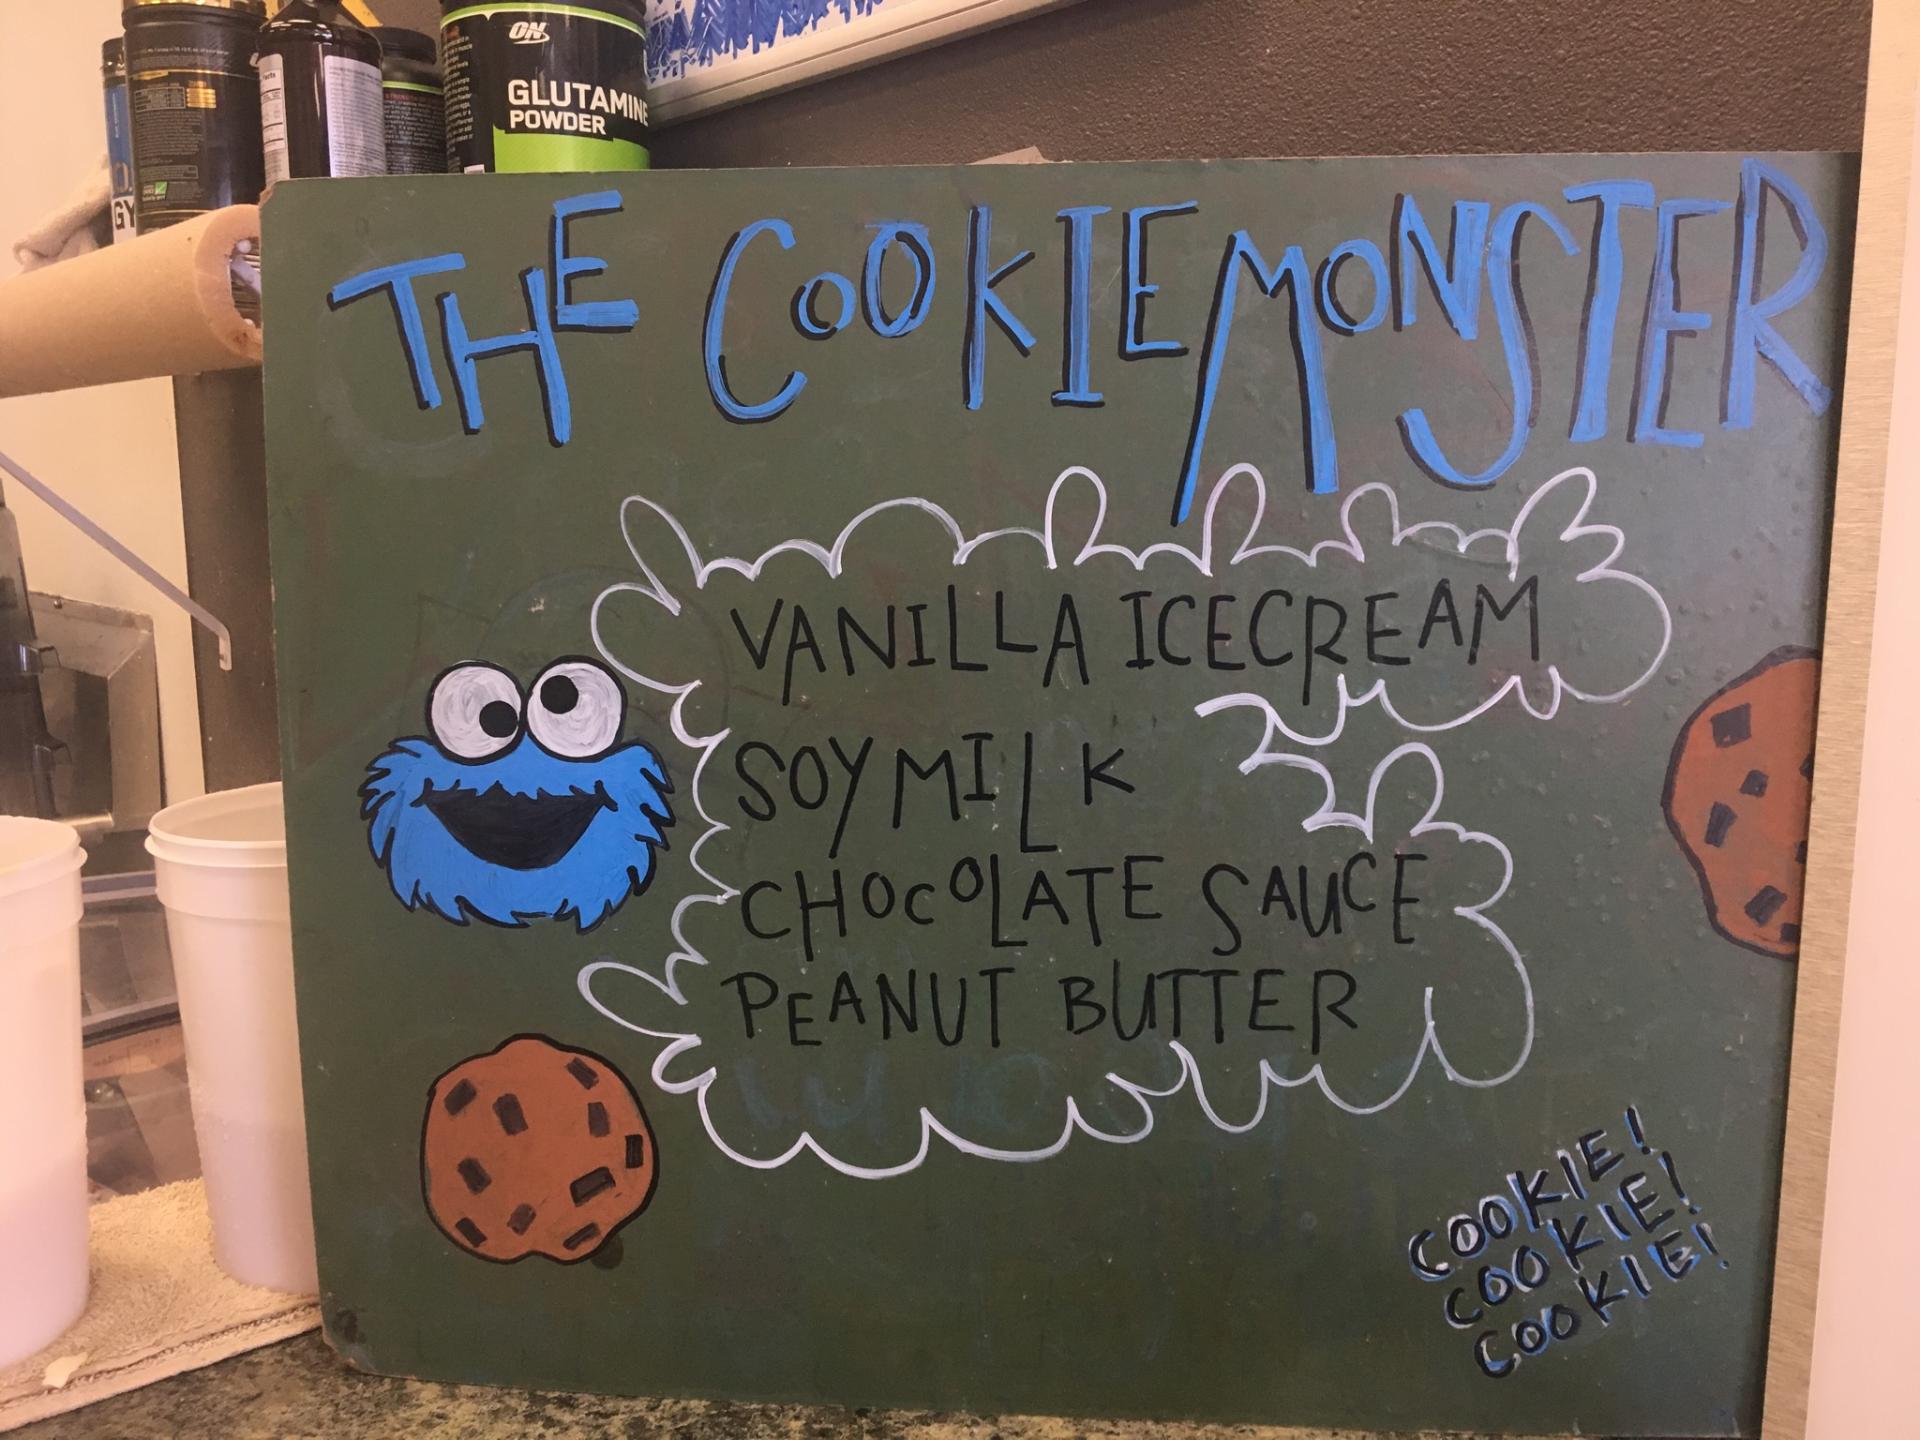 ON
GLUTAMINE
POWDER
GY
THE COOKIE MONSTER
VANILLA ICECREAM
SOY MILK
CHOCOLATE SAUCE
PEANUT BUTTER
COOKIE!
COOKIE!
COOKIE!